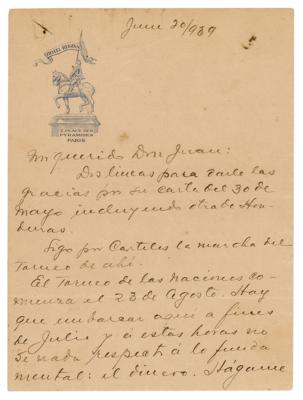 June 20/939
HOTEL REGINA
2, PLACE DES
PYRAMIDES
PARIS
Mi querido Don Juan:
Dos líneas para darle las
gracias por su carta del 30 de
mayo incluyendo otra de Hon-
duras.
Sigo por Carteles la marcha del
Torneo de ahí.
El Torneo de las Naciones co-
mienza el 23 de Agosto. Hay
que embarcar aquí a fines
de Julio y á estas horas no
se nada respecto á lo funda
mental: el dinero. Hágame